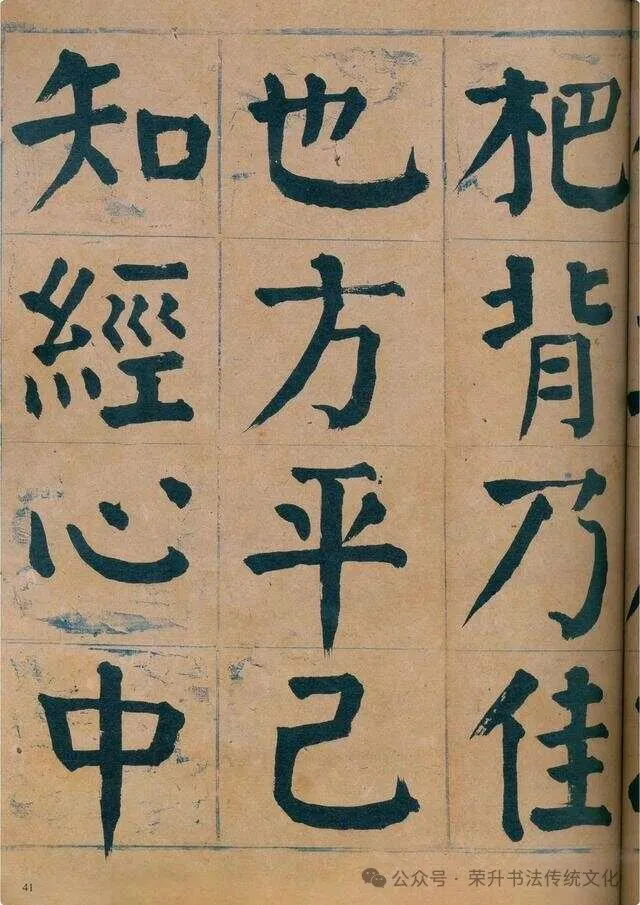 杷背乃佳
也方平己
知經心中
41
公众号 · 荣升书法传统文化